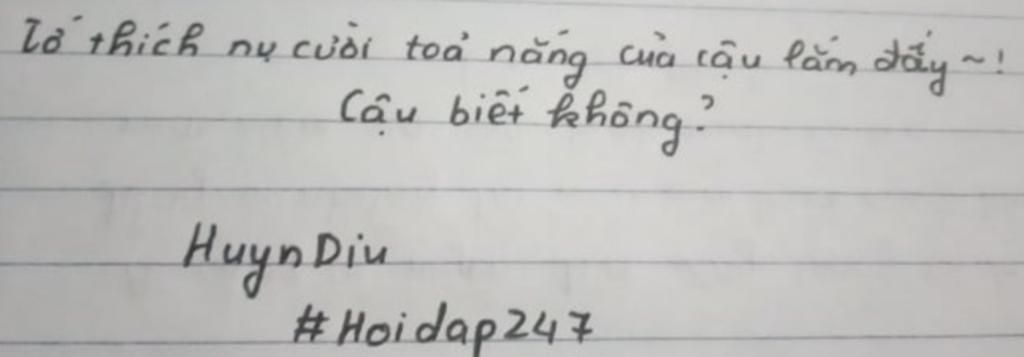 Tớ thích nụ cười toả nắng của cậu lắm đấy ~!
Cậu biết không?
HuynDiu
#Hoidap247